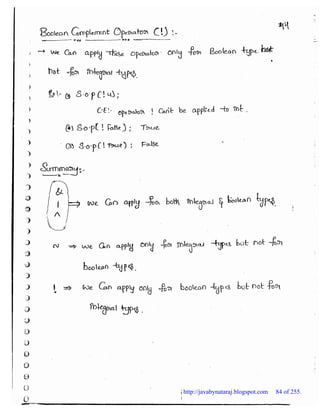 Boolean Complement Operator (!) :-
→ we can apply these operator only for Boolean type but
not for integral types.
Ex:- ① S.o.p(!4);
C.E:- operator ! can't be applied to int.
② S.o.p(! False); True
③ S.o.p(! True) : False
Summary:-
&
| ⇒ we can apply for both integral & boolean types.
^
~ ⇒ we can apply only for integral types but not for
boolean types.
! ⇒ we can apply only for boolean types but not for
integral types.
http://javabynataraj.blogspot.com 84 of 255.